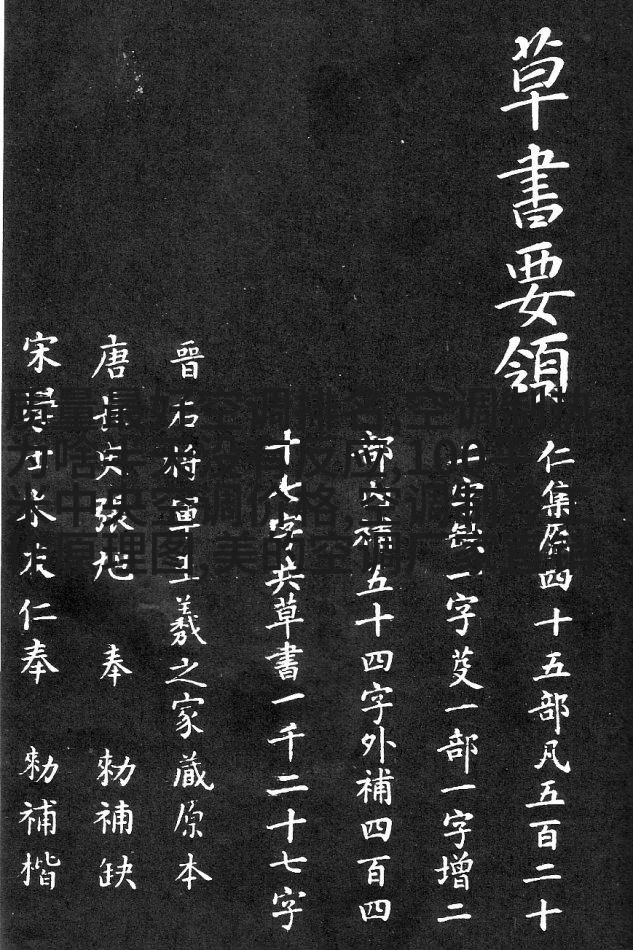 草書要領
仁集原四十五部凡五百二十
字缺一字芟一部一字增二
部內補五十四字外補四百四
十七字共草書一千二十七字
晉右將軍王羲之家藏原本
唐長史張旭 奉 勑補缺
宋 米友仁奉 勑補楷
质量最好空调排名,空调制热
为啥 没有反应,100平
米中央空调价格,空调制
原理图,美的空调厂